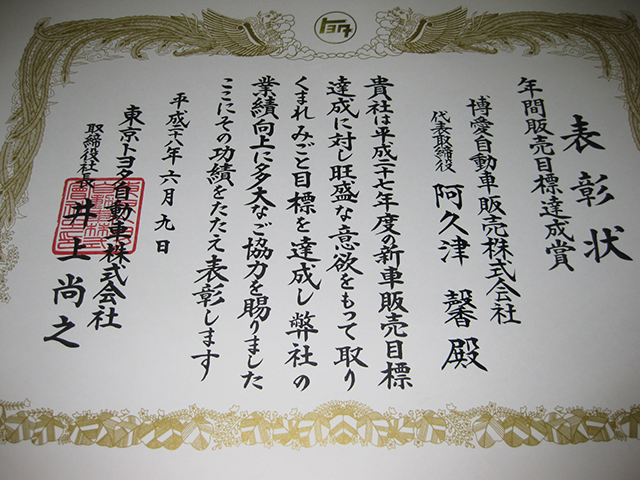 トヨタ
表彰状
年間販売目標達成賞
博愛自動車販売株式会社
代表取締役 阿久津 馨 殿
貴社は平成二十七年度の新車販売目標
達成に対し旺盛な意欲をもって取り
くまれ みごと目標を達成し 弊社の
業績向上に多大なご協力を賜りました
ここにその功績をたたえ 表彰します
平成二八年六月九日
東京トヨタ自動車株式会社
取締役社長 井上尚之